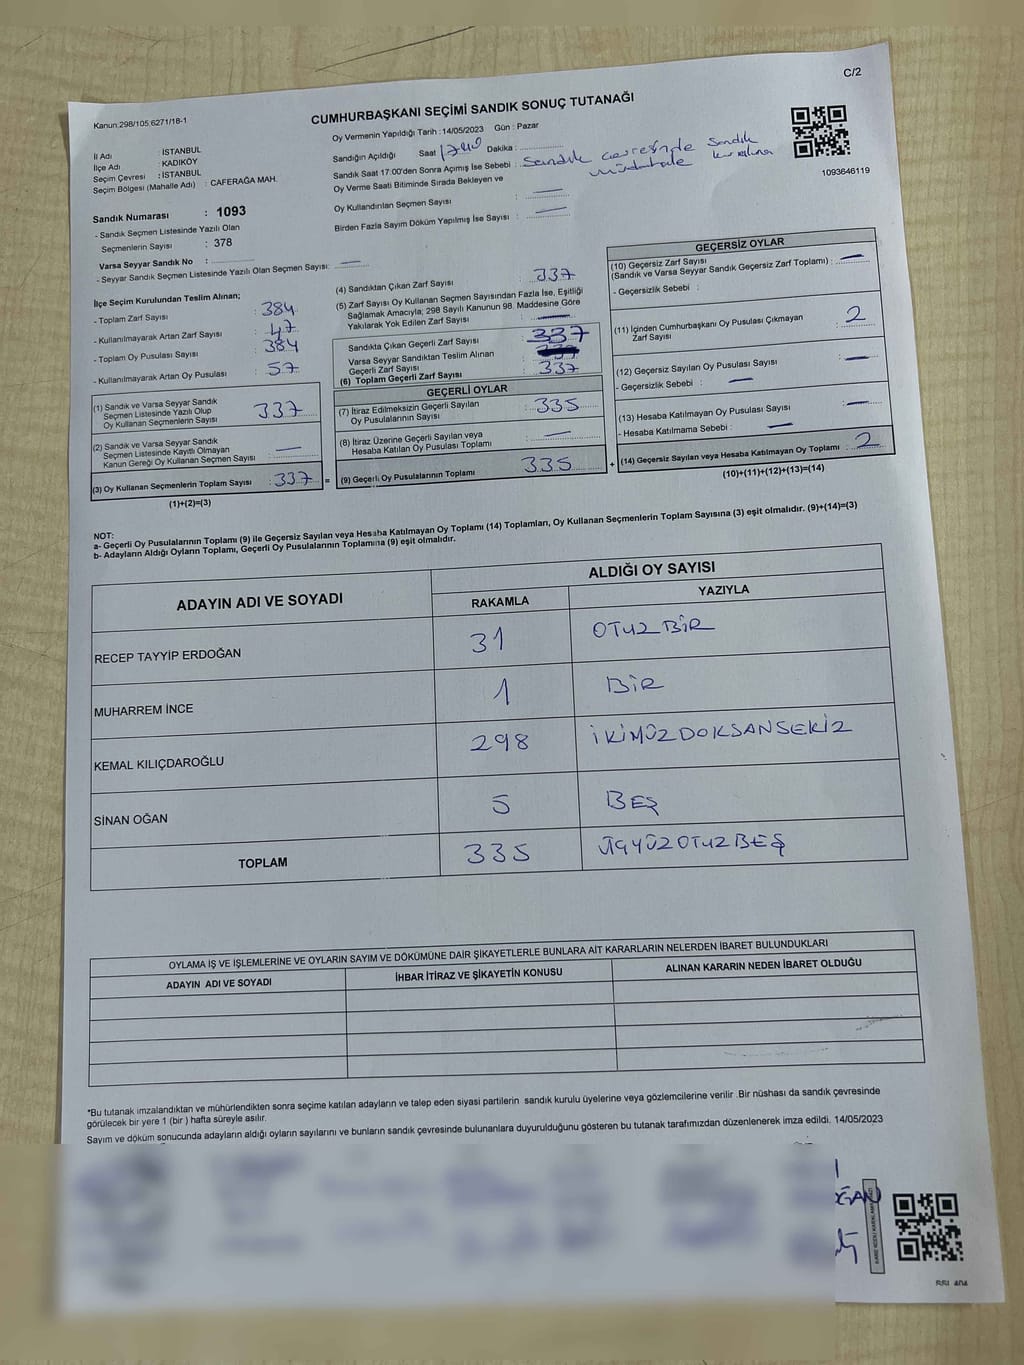 C/2
Kanun:298/105.6271/18-1
CUMHURBAŞKANI SEÇİMİ SANDIK SONUÇ TUTANAĞI
Oy Vermenin Yapıldığı Tarih : 14/05/2023 Gün : Pazar
İl Adı : İSTANBUL
İlçe Adı : KADIKÖY
Seçim Çevresi : İSTANBUL
Seçim Bölgesi (Mahalle Adı) : CAFERAĞA MAH.
Sandığın Açıldığı Saat 17:40 Dakika :
Sandık Saat 17:00'den Sonra Açımış İse Sebebi : Sandık çevresinde Sandık
müdahale kuruluna
Oy Verme Saati Bitiminde Sırada Bekleyen ve
Oy Kullandırılan Seçmen Sayısı : —
Birden Fazla Sayım Döküm Yapılmış İse Sayısı : —
1093646119
Sandık Numarası : 1093
- Sandık Seçmen Listesinde Yazılı Olan
Seçmenlerin Sayısı : 378
Varsa Seyyar Sandık No :
- Seyyar Sandık Seçmen Listesinde Yazılı Olan Seçmen Sayısı: —
İlçe Seçim Kurulundan Teslim Alınan;
- Toplam Zarf Sayısı : 384
- Kullanılmayarak Artan Zarf Sayısı : 47
- Toplam Oy Pusulası Sayısı : 384
- Kullanılmayarak Artan Oy Pusulası : 57
(1) Sandık ve Varsa Seyyar Sandık
Seçmen Listesinde Yazılı Olup
Oy Kullanan Seçmenlerin Sayısı : 337
(2) Sandık ve Varsa Seyyar Sandık
Seçmen Listesinde Kayıtlı Olmayan
Kanun Gereği Oy Kullanan Seçmen Sayısı : —
(3) Oy Kullanan Seçmenlerin Toplam Sayısı : 337 =
(1)+(2)=(3)
(4) Sandıktan Çıkan Zarf Sayısı : 337
(5) Zarf Sayısı Oy Kullanan Seçmen Sayısından Fazla İse, Eşitliği
Sağlamak Amacıyla; 298 Sayılı Kanunun 98. Maddesine Göre
Yakılarak Yok Edilen Zarf Sayısı : —
Sandıkta Çıkan Geçerli Zarf Sayısı : 337
Varsa Seyyar Sandıktan Teslim Alınan
Geçerli Zarf Sayısı :
(6) Toplam Geçerli Zarf Sayısı : 337
GEÇERLİ OYLAR
(7) İtiraz Edilmeksizin Geçerli Sayılan
Oy Pusulalarının Sayısı : 335
(8) İtiraz Üzerine Geçerli Sayılan veya
Hesaba Katılan Oy Pusulası Toplamı : —
(9) Geçerli Oy Pusulalarının Toplamı : 335 +
GEÇERSİZ OYLAR
(10) Geçersiz Zarf Sayısı
(Sandık ve Varsa Seyyar Sandık Geçersiz Zarf Toplamı) : —
- Geçersizlik Sebebi :
(11) İçinden Cumhurbaşkanı Oy Pusulası Çıkmayan
Zarf Sayısı : 2
(12) Geçersiz Sayılan Oy Pusulası Sayısı : —
- Geçersizlik Sebebi : —
(13) Hesaba Katılmayan Oy Pusulası Sayısı : —
- Hesaba Katılmama Sebebi : —
(14) Geçersiz Sayılan veya Hesaba Katılmayan Oy Toplamı : 2
(10)+(11)+(12)+(13)=(14)
NOT:
a- Geçerli Oy Pusulalarının Toplamı (9) ile Geçersiz Sayılan veya Hesaba Katılmayan Oy Toplamı (14) Toplamları, Oy Kullanan Seçmenlerin Toplam Sayısına (3) eşit olmalıdır. (9)+(14)=(3)
b- Adayların Aldığı Oyların Toplamı, Geçerli Oy Pusulalarının Toplamına (9) eşit olmalıdır.
ADAYIN ADI VE SOYADI
ALDIĞI OY SAYISI
RAKAMLA YAZIYLA
RECEP TAYYİP ERDOĞAN 31 OTUZ BİR
MUHARREM İNCE 1 BİR
KEMAL KILIÇDAROĞLU 298 İKİYÜZDOKSANSEKİZ
SİNAN OĞAN 5 BEŞ
TOPLAM 335 ÜÇYÜZOTUZBEŞ
OYLAMA İŞ VE İŞLEMLERİNE VE OYLARIN SAYIM VE DÖKÜMÜNE DAİR ŞİKAYETLERLE BUNLARA AİT KARARLARIN NELERDEN İBARET BULUNDUKLARI
ADAYIN ADI VE SOYADI İHBAR İTİRAZ VE ŞİKAYETİN KONUSU ALINAN KARARIN NEDEN İBARET OLDUĞU
*Bu tutanak imzalandıktan ve mühürlendikten sonra seçime katılan adayların ve talep eden siyasi partilerin sandık kurulu üyelerine veya gözlemcilerine verilir .Bir nüshası da sandık çevresinde
görülecek bir yere 1 (bir ) hafta süreyle asılır.
Sayım ve döküm sonucunda adayların aldığı oyların sayılarını ve bunların sandık çevresinde bulunanlara duyurulduğunu gösteren bu tutanak tarafımızdan düzenlenerek imza edildi. 14/05/2023